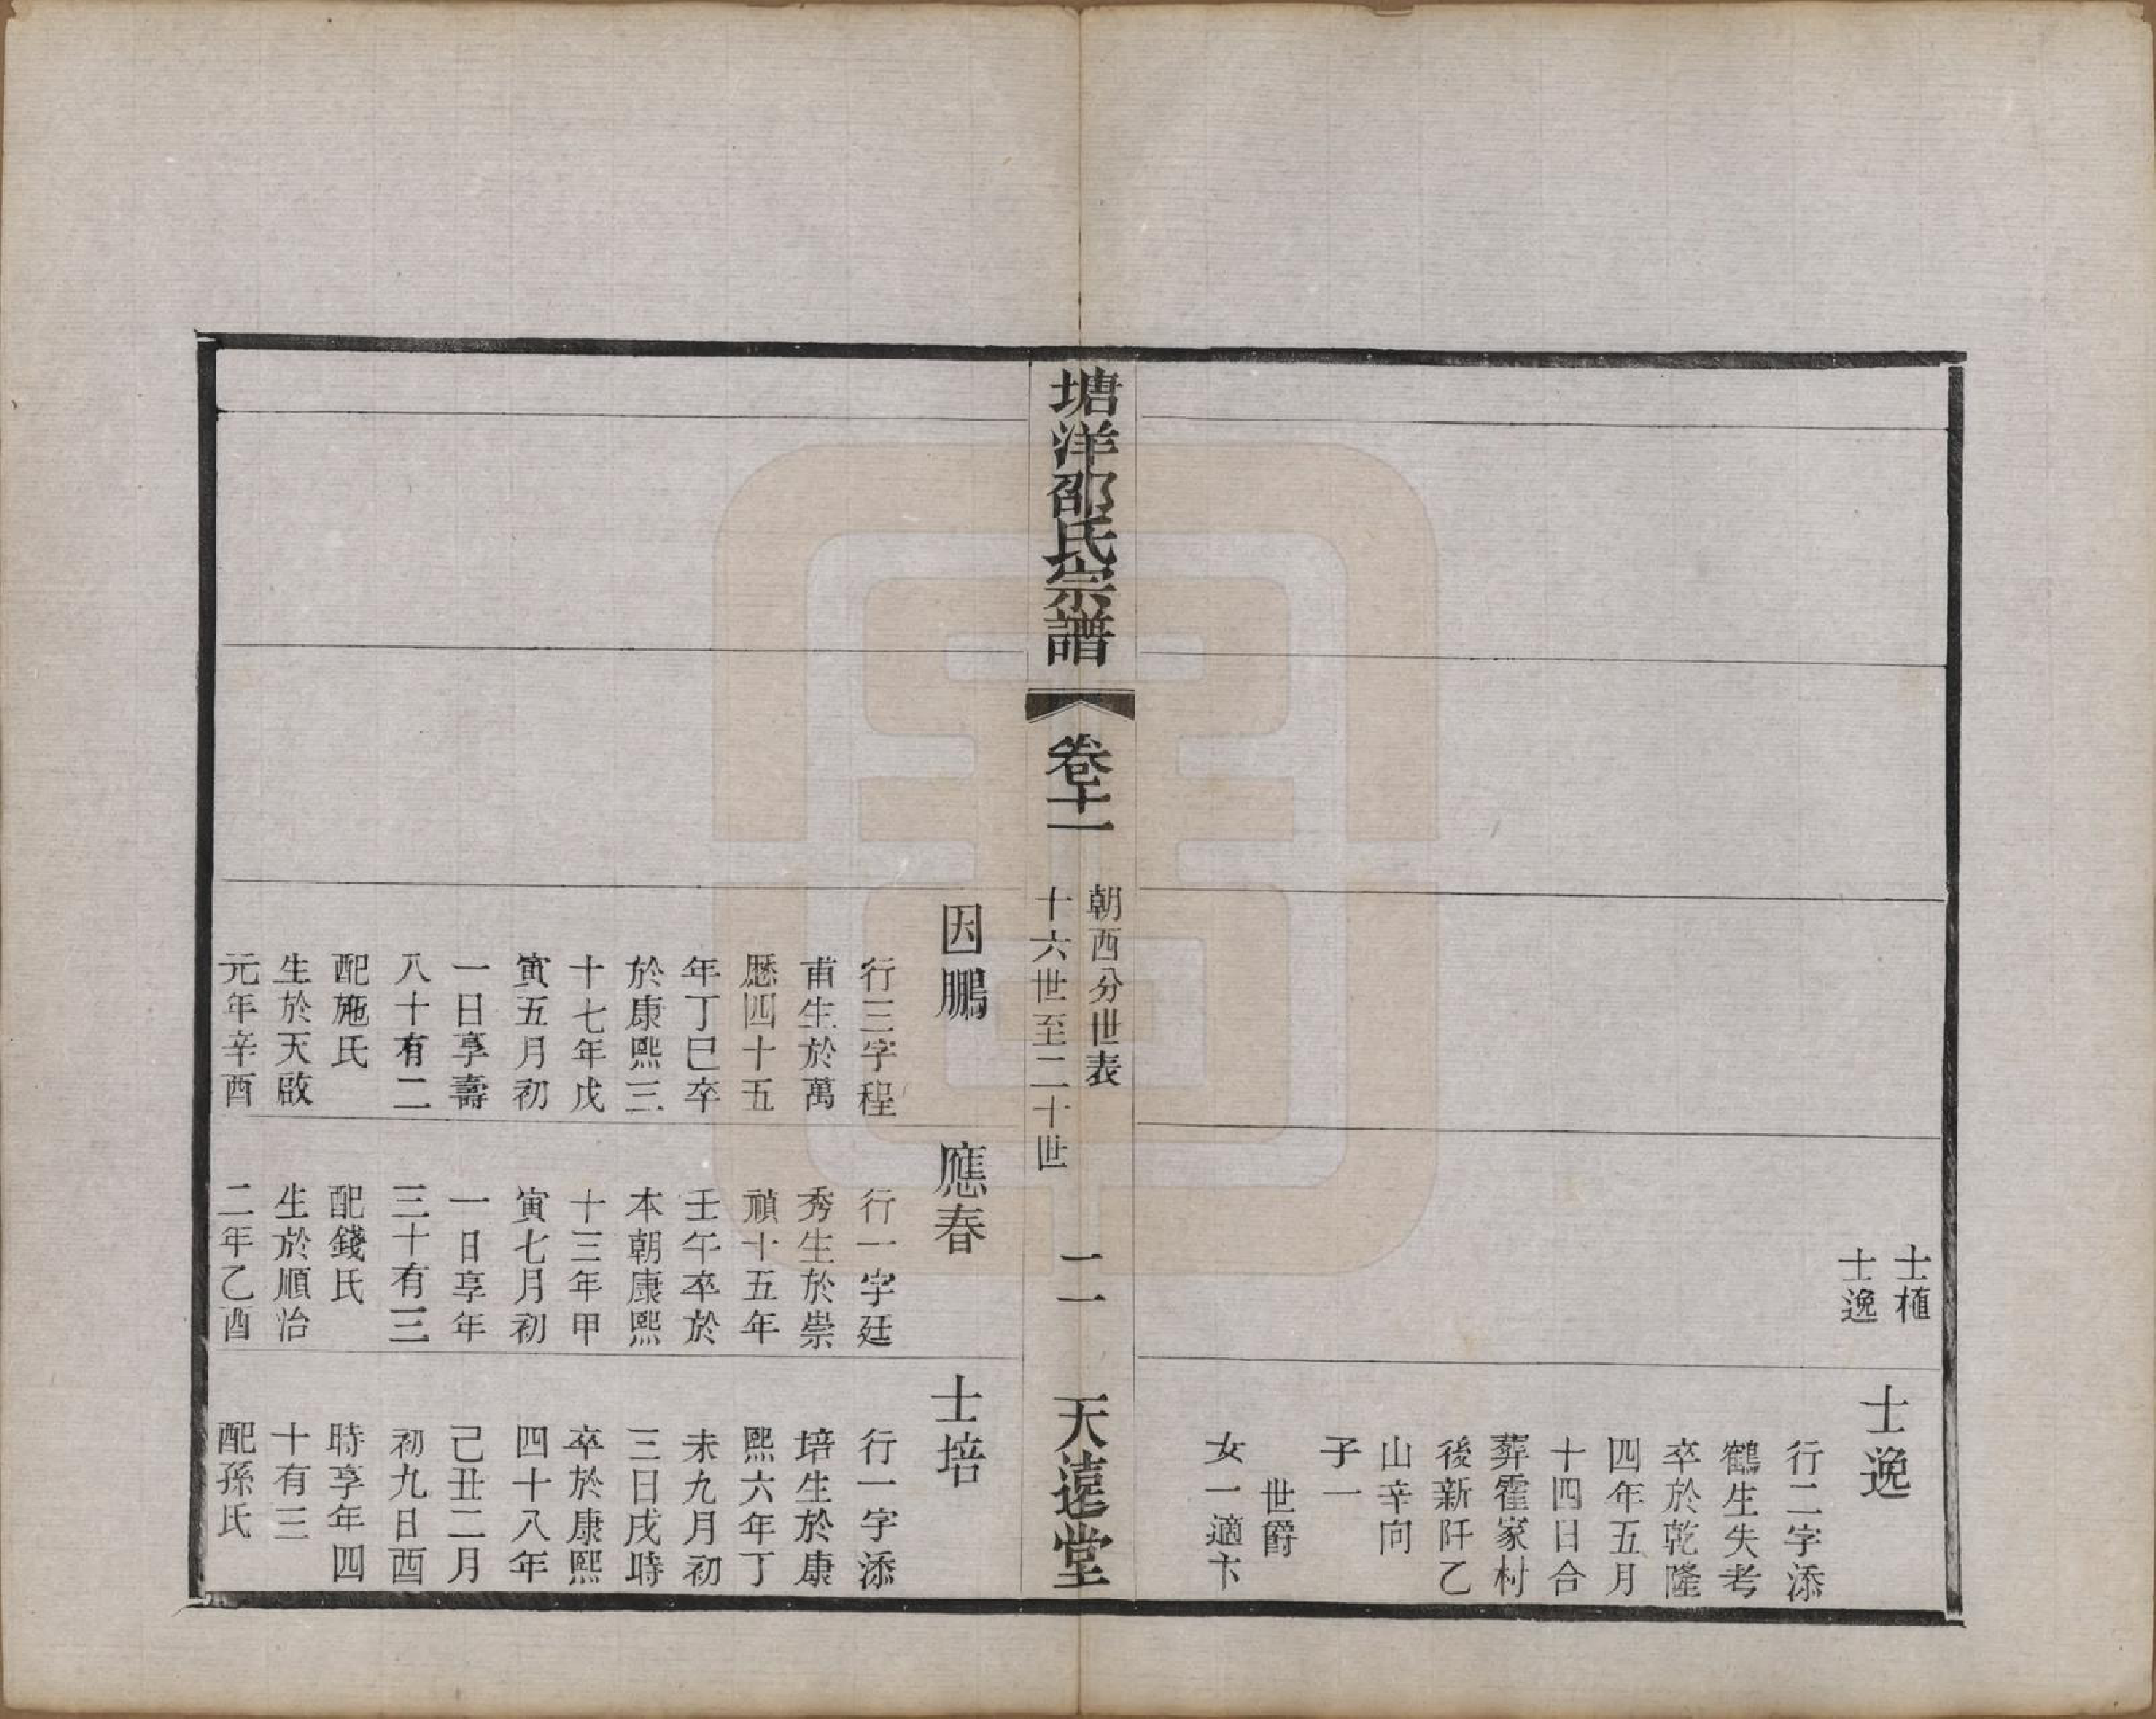 士植
士逸
士逸
行二字添
鶴生失考
卒於乾隆
四年五月
十四日合
葬霍家村
後新阡乙
山辛向
子一
世爵
女一適卞
塘洋邵氏宗譜
卷十一
朝西分世表
十六世至二十世
二一
天遠堂
因鵬
行三字程
甫生於萬
歷四十五
年丁巳卒
於康熙三
十七年戊
寅五月初
一日享壽
八十有二
配施氏
生於天啟
元年辛酉
應春
行一字廷
秀生於崇
禎十五年
壬午卒於
本朝康熙
十三年甲
寅七月初
一日享年
三十有三
配錢氏
生於順治
二年乙酉
士培
行一字添
培生於康
熙六年丁
未九月初
三日戌時
卒於康熙
四十八年
己丑二月
初九日酉
時享年四
十有三
配孫氏